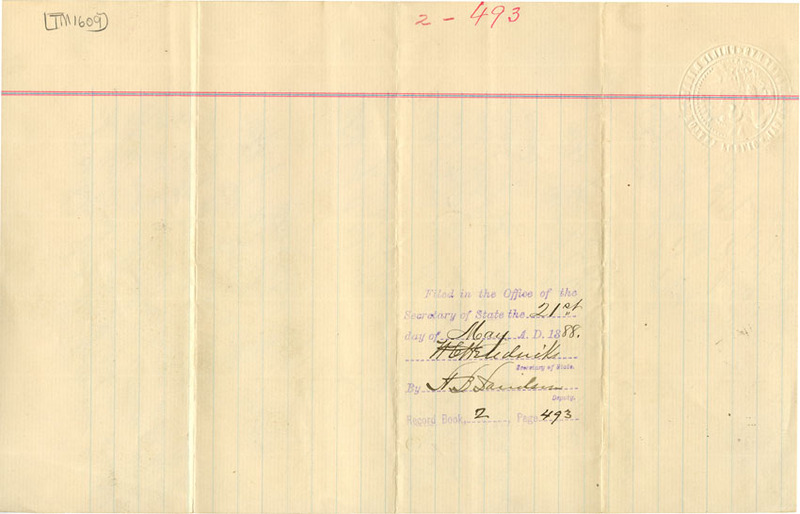 TM1609
2 - 493
Filed in the Office of the
Secretary of State the 21st
day of May A. D. 1888.
Secretary of State.
By
Deputy.
Record Book, 2, Page 493